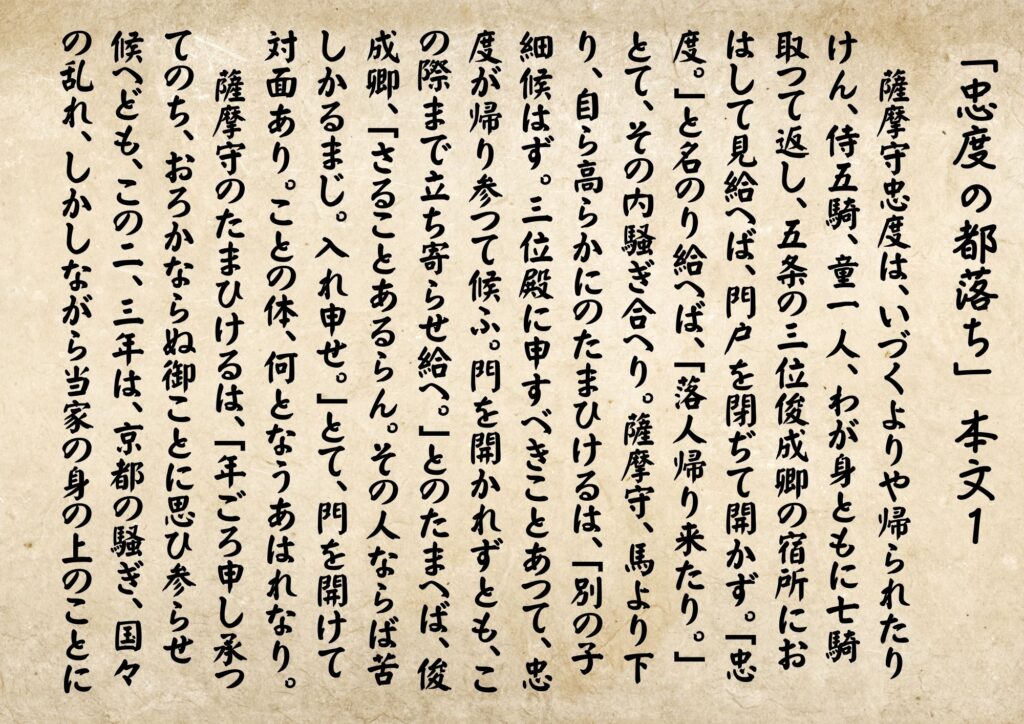 「忠度の都落ち」 本文1
薩摩守忠度は、いづくよりや帰られたり
けん、侍五騎、童一人、わが身ともに七騎
取つて返し、五条の三位俊成卿の宿所にお
はして見給へば、門戸を閉ぢて開かず。「忠
度。」と名のり給へば、「落人帰り来たり。」
とて、その内騒ぎ合へり。薩摩守、馬より下
り、自ら高らかにのたまひけるは、「別の子
細候はず。三位殿に申すべきことあつて、忠
度が帰り参つて候ふ。門を開かれずとも、こ
の際まで立ち寄らせ給へ。」とのたまへば、俊
成卿、「さることあるらん。その人ならば苦
しかるまじ。入れ申せ。」とて、門を開けて
対面あり。ことの体、何となうあはれなり。
薩摩守のたまひけるは、「年ごろ申し承つ
てのち、おろかならぬ御ことに思ひ参らせ
候へども、この二、三年は、京都の騒ぎ、国々
の乱れ、しかしながら当家の身の上のことに